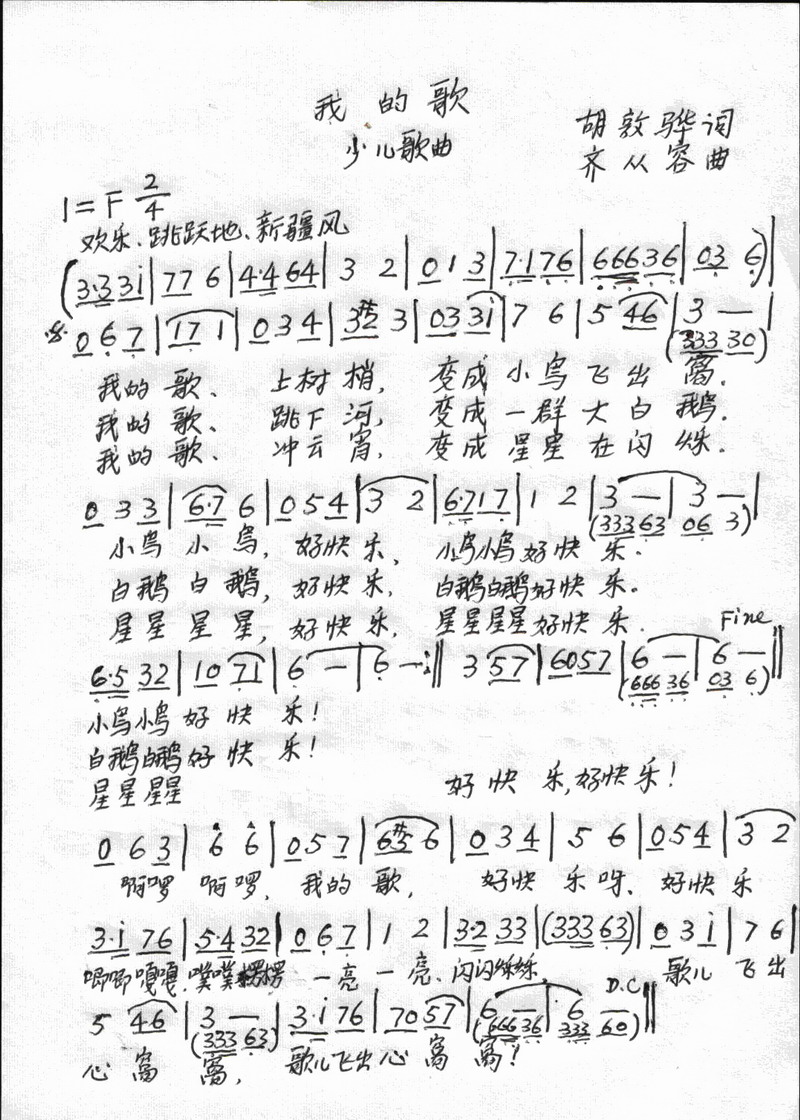 我的歌
少儿歌曲
胡敦骅词
齐从容曲
1=F 2/4
欢乐、跳跃地、新疆风
(3·33i|77 6|4·4 64|3 2|0 1 3|7·176|66636|03 6)|
0 6 7|17 1|0 3 4|3#2 3|03 3i|7 6|5 46|3 —|
(333 30)
我的歌、 上树梢, 变成小鸟飞出窝.
我的歌、 跳下河, 变成一群大白鹅.
我的歌、 冲云宵, 变成星星在闪烁.
0 3 3|6·7 6|0 5 4|3 2|6·717|1 2|3 —|3 —|
(333 63 06 3)
小鸟小鸟, 好快乐, 小鸟小鸟好快乐.
白鹅白鹅, 好快乐, 白鹅白鹅好快乐.
星星星星, 好快乐, 星星星星好快乐.
Fine
6·5 32|10 71|6 —|6 —:‖ 3 57|6057|6 —|6 —‖
(666 36 03 6)
小鸟小鸟好快乐!
白鹅白鹅好快乐!
星星星星 好快乐,好快乐!
0 6 3|6 6|0 5 7|6#5 6|0 3 4|5 6|0 5 4|3 2
啊啰啊啰, 我的歌, 好快乐呀、好快乐
3·i 76|5·4 32|0 6 7|1 2|3·2 33|(333 63)|0 3 i|7 6|
唧唧嘎嘎、噗噗楞楞 一亮一亮、闪闪烁烁, 歌儿飞出
D.C
5 46|3 —|3·i 76|70 57|6 —|6 —‖
(333 63) (666 36 333 60)
心窝窝, 歌儿飞出心窝窝!